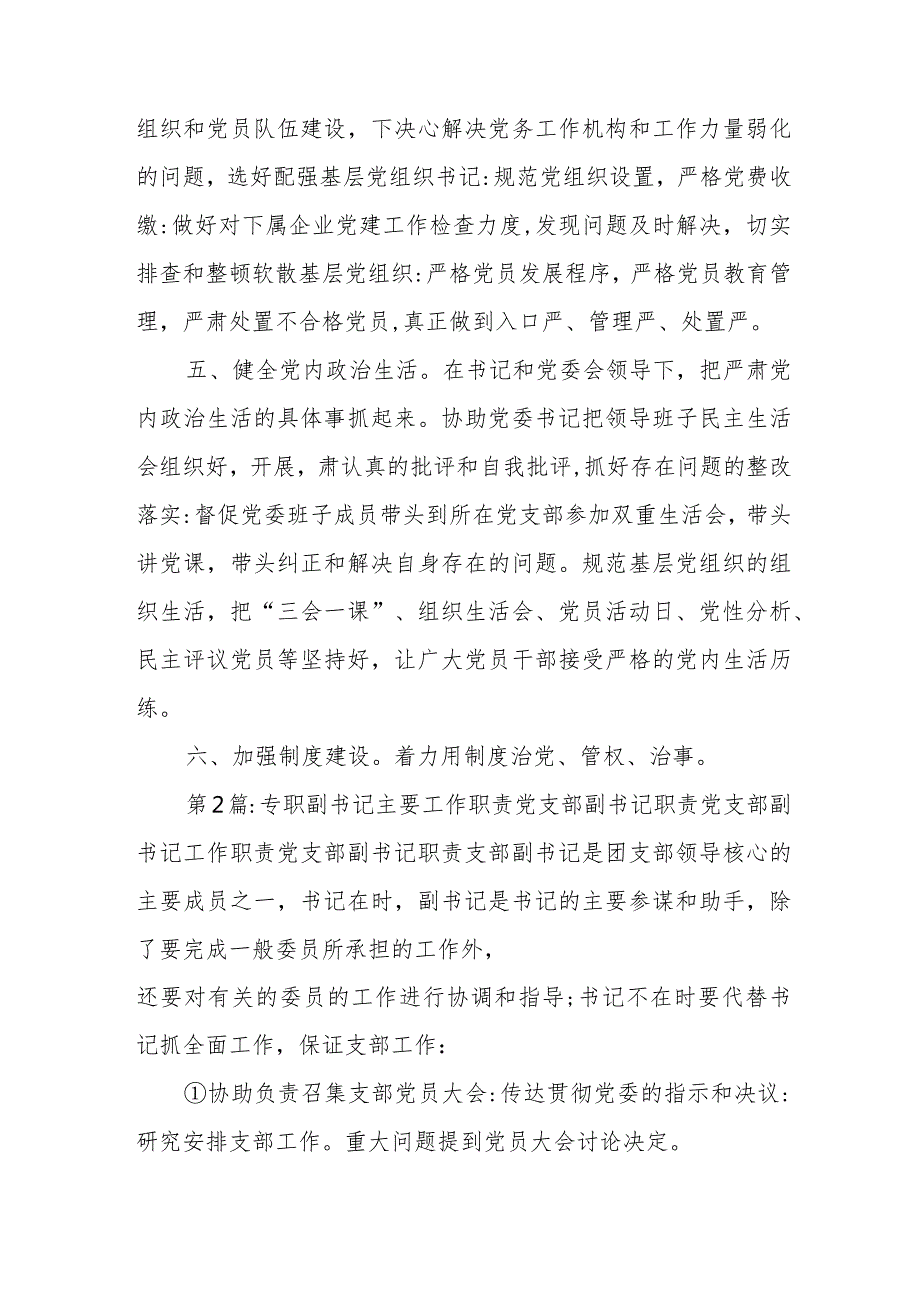 组织和党员队伍建设，下决心解决党务工作机构和工作力量弱化
的问题，选好配强基层党组织书记:规范党组织设置，严格党费收
缴:做好对下属企业党建工作检查力度,发现问题及时解决，切实
排查和整顿软散基层党组织:严格党员发展程序，严格党员教育管
理，严肃处置不合格党员,真正做到入口严、管理严、处置严。
五、健全党内政治生活。在书记和党委会领导下，把严肃党
内政治生活的具体事抓起来。协助党委书记把领导班子民主生活
会组织好，开展，肃认真的批评和自我批评,抓好存在问题的整改
落实:督促党委班子成员带头到所在党支部参加双重生活会，带头
讲党课，带头纠正和解决自身存在的问题。规范基层党组织的组
织生活，把“三会一课”、组织生活会、党员活动日、党性分析、
民主评议党员等坚持好，让广大党员干部接受严格的党内生活历
练。
六、加强制度建设。着力用制度治党、管权、治事。
第2篇:专职副书记主要工作职责党支部副书记职责党支部副
书记工作职责党支部副书记职责支部副书记是团支部领导核心的
主要成员之一，书记在时，副书记是书记的主要参谋和助手，除
了要完成一般委员所承担的工作外，
还要对有关的委员的工作进行协调和指导;书记不在时要代替书
记抓全面工作，保证支部工作:
①协助负责召集支部党员大会:传达贯彻党委的指示和决议:
研究安排支部工作。重大问题提到党员大会讨论决定。